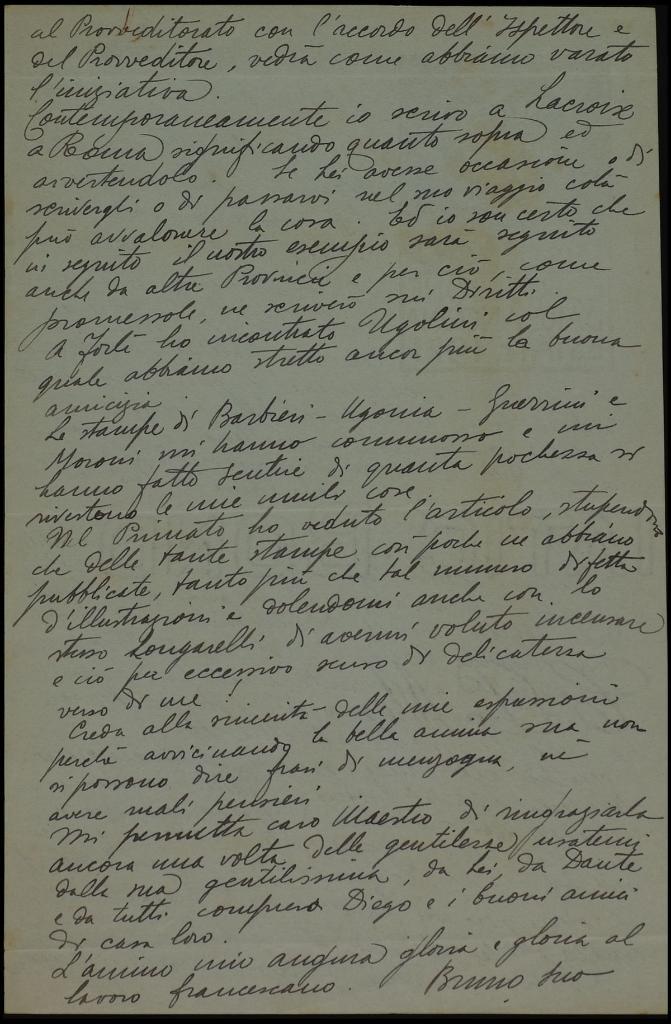 al Provveditorato con l'accordo dell'Ispettore e
del Provveditore, vedrà come abbiamo varato
l'iniziativa.
Contemporaneamente io scrivo a Lacroix
a Roma significando quanto sopra ed
avvertendolo. Se Lei avesse occasione o di
scrivergli o di passarvi nel suo viaggio colà
può avvalorare la cosa. Ed io son certo che
in seguito il nostro esempio sarà seguito
anche da altre Provincie e per ciò, come
promessole, ne scriverò sui Diritti.
A Forlì ho incontrato Ugolini col
quale abbiamo stretto ancor più la buona
amicizia.
Le stampe di Barbieri - Ugonia - Guerrini e
Moroni mi hanno commosso e mi
hanno fatto sentire di quanta pochezza si
rivestono le mie umili cose.
Nel Primato ho veduto l'articolo, stupendomi
che delle tante stampe così poche ne abbiano
pubblicate, tanto più che tal numero difetta
d'illustrazioni e dolendomi anche con lo
stesso Longarelli di avermi voluto incensare
e ciò per eccessivo senso di delicatezza
verso di me!
Creda alla sincerità delle mie espressioni
perché avvicinando la bella anima sua non
si possono dire frasi di menzogna, nè
avere mali pensieri.
Mi permetta caro Maestro di ringraziarla
ancora una volta delle gentilezze usatemi
dalla sua gentilissima, da Lei, da Dante
e da tutti compreso Diego e i buoni amici
di casa loro.
L'animo mio augura gloria e gloria al
lavoro francescano. Bruno suo